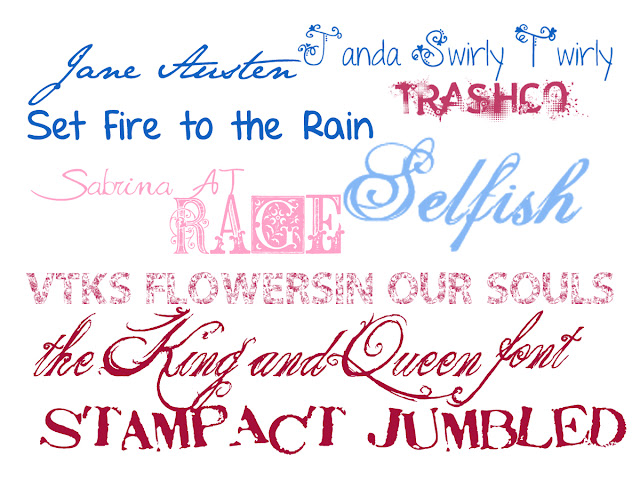 Jane Austen
Janda Swirly Twirly
TRASHCO
Set Fire to the Rain
Sabrina AT
RAGE
Selfish
VTKS FLOWERSIN OUR SOULS
the King and Queen font
STAMPACT JUMBLED